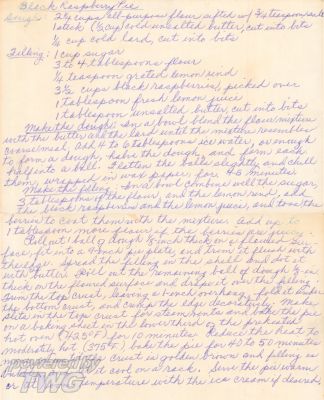 Black Raspberry Pie
Crust: 2¼ cups all-purpose flour sifted w/ ¾ teaspoon salt
1 stick (½ cup) cold unsalted butter, cut into bits
¼ cup cold lard, cut into bits
Filling: 1 cup sugar
3 to 4 tablespoons flour
¼ teaspoon grated lemon rind
3½ cups black raspberries, picked over
1 tablespoon fresh lemon juice
1 tablespoon unsalted butter, cut into bits
Make the dough: In a bowl blend the flour mixture
with the butter and the lard until the mixture resembles
coarse meal, add 4 to 6 tablespoons ice water, or enough
to form a dough, halve the dough and form each
half into a ball. Flatten the balls slightly and chill
them, wrapped in wax paper, for 45 minutes
Make the filling: In a bowl combine well the sugar,
3 tablespoons of the flour, and the lemon rind, add
the black raspberries and the lemon juice, and toss the
berries to coat them with the mixture. Add up to
1 tablespoon more flour if the berries are juicy.
Roll out 1 ball of dough ⅛ inch thick on a floured sur-
face, fit it into a 9 inch pie plate, and trim it flush with
the edge. Spread the filling in the shell and dot it
with butter. Roll out the remaining ball of dough ⅛ in
thick on the floured surface and drape it over the filling.
Trim the top crust, leaving a 1 inch overhang, fold it under
the bottom crust, and crimp the edge decoratively. Make
slits in the top crust for steam vents and bake the pie
on a baking sheet in the lower third of the preheated
hot oven (425°F) for 10 minutes. Reduce the heat to
moderately hot (375°F) bake the pie for 40 to 50 minutes
crust is golden brown and filling is
cool on a rack. Serve the pie warm
or temperature with the ice cream if desired.
powered by
TWG